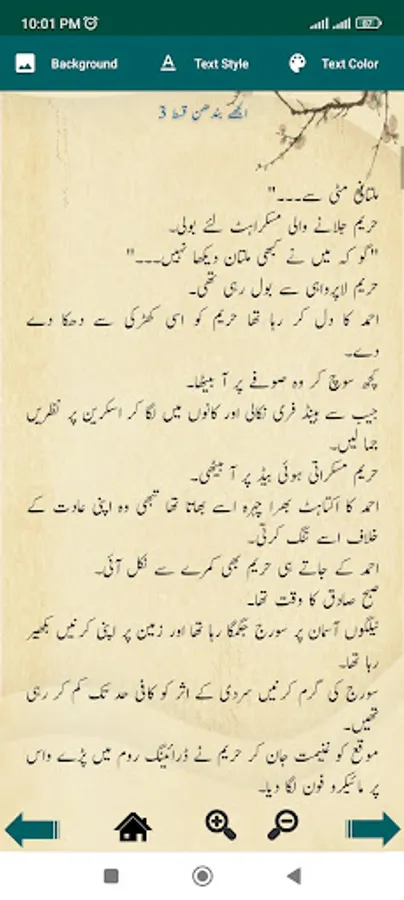 10:01 PM
Background
Text Style
Text Color
الجھے بندھن قسط 3
ملتانی مٹی سے۔۔۔"
حریم جلانے والی مسکراہٹ لئے بولی۔
"گو کہ میں نے کبھی ملتان دیکھا نہیں۔۔۔"
حریم لاپرواہی سے بول رہی تھی۔
احمد کا دل کر رہا تھا حریم کو اسی کھڑکی سے دھکا دے
دے۔
کچھ سوچ کر وہ صوفے پر آ بیٹھا۔
جیب سے ہینڈ فری نکالی اور کانوں میں لگا کر اسکرین پر نظریں
جما لیں۔
حریم مسکراتی ہوئی بیڈ پر آ بیٹھی۔
احمد کا اکتاہٹ بھرا چہرہ اسے بھاتا تھا تبھی وہ اپنی عادت کے
خلاف اسے تنگ کرتی۔
احمد کے جاتے ہی حریم بھی کمرے سے نکل آئی۔
صبح صادق کا وقت تھا۔
نیلگوں آسمان پر سورج جگمگا رہا تھا اور زمین پر اپنی کرنیں بکھیر
رہا تھا۔
سورج کی گرم کرنیں سردی کے اثر کو کافی حد تک کم کر رہی
تھیں۔
موقع کو غنیمت جان کر حریم نے ڈرائینگ روم میں پڑے واس
پر مائیکرو فون لگا دیا۔